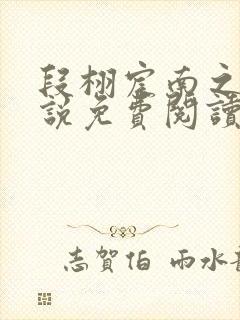 段栩宦南之
說免費閱讀
志賀伯 雨水